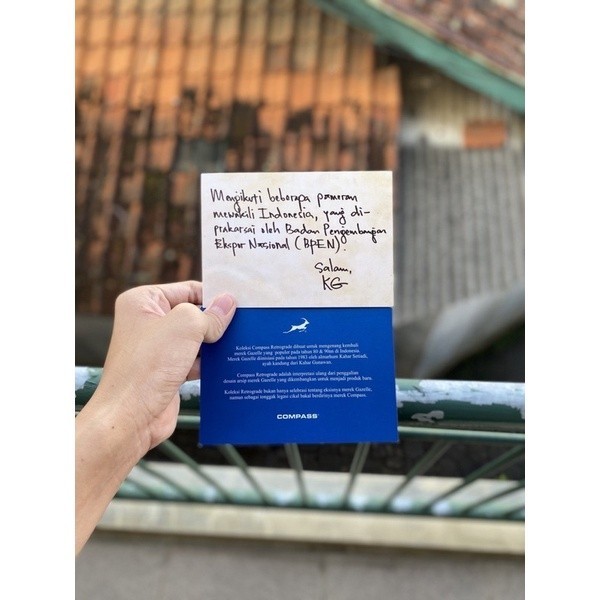 Mengikuti beberapa pameran
mewakili Indonesia, yang di-
prakarsai oleh Badan Pengembangan
Ekspor Nasional (BPEN).
Salam,
KG
Koleksi Compass Retrograde dibuat untuk mengenang kembali
merek Gazelle yang populer pada tahun 80 & 90an di Indonesia.
Merek Gazelle diinisiasi pada tahun 1983 oleh almarhum Kahar Setiadi,
ayah kandung dari Kahar Gunawan.
Compass Retrograde adalah interpretasi ulang dari penggalian
desain arsip merek Gazelle yang dikembangkan untuk menjadi produk baru.
Koleksi Retrograde bukan hanya selebrasi tentang eksisnya merek Gazelle,
namun sebagai tonggak legasi cikal bakal berdirinya merek Compass.
COMPASS®